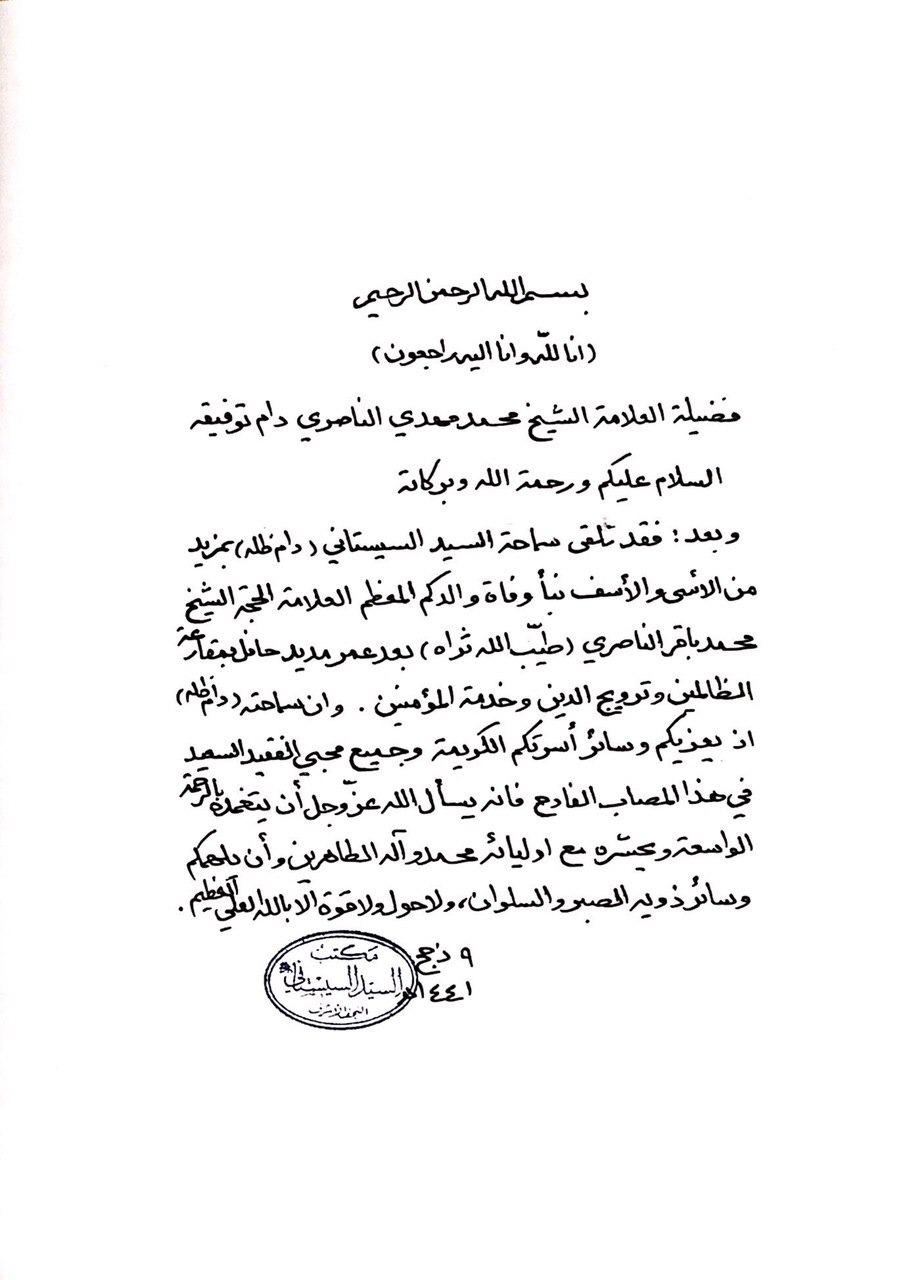 بسم الله الرحمن الرحيم
(انا لله وانا اليه راجعون)
فضيلة العلامة الشيخ محمد مهدي الناصري دام توفيقه
السلام عليكم ورحمة الله وبركاته
وبعد : فقد تلقى سماحة السيد السيستاني (دام ظله) بمزيد
من الأسى والأسف نبأ وفاة والدكم المعظم العلامة الحجة الشيخ
محمد باقر الناصري (طيّب الله ثراه) بعد عمر مديد حافل بمقارعة
الظالمين وترويج الدين وخدمة المؤمنين . وان سماحته (دام ظله)
اذ يعزيكم وسائر أسرتكم الكريمة وجميع محبي الفقيد السعيد
في هذا المصاب الفادح فانه يسأل الله عزّ وجل أن يتغمده بالرحمة
الواسعة ويحشره مع اوليائه محمد وآله الطاهرين وأن يلهمكم
وسائر ذويه الصبر والسلوان، ولا حول ولا قوة الّا بالله العلي العظيم .
٩ ذ ج
١٤٤١هـ
مكتب
السيد السيستاني
النجف الاشرف